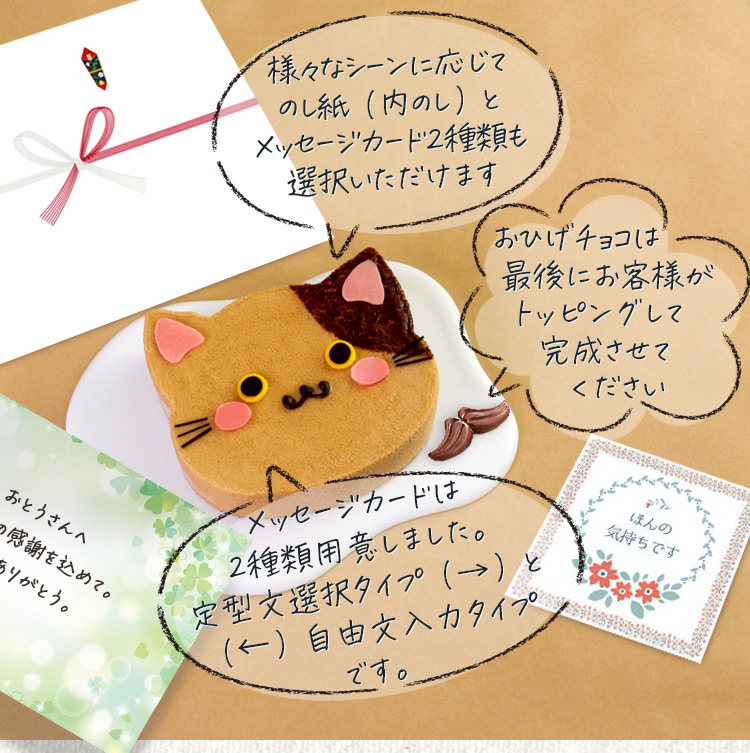 様々なシーンに応じて
のし紙（内のし）と
メッセージカード2種類も
選択いただけます
おひげチョコは
最後にお客様が
トッピングして
完成させて
ください
メッセージカードは
2種類用意しました。
定型文選択タイプ（→）と
（←）自由文入力タイプ
です。
おとうさんへ
の感謝を込めて。
ありがとう。
ほんの
気持ちです